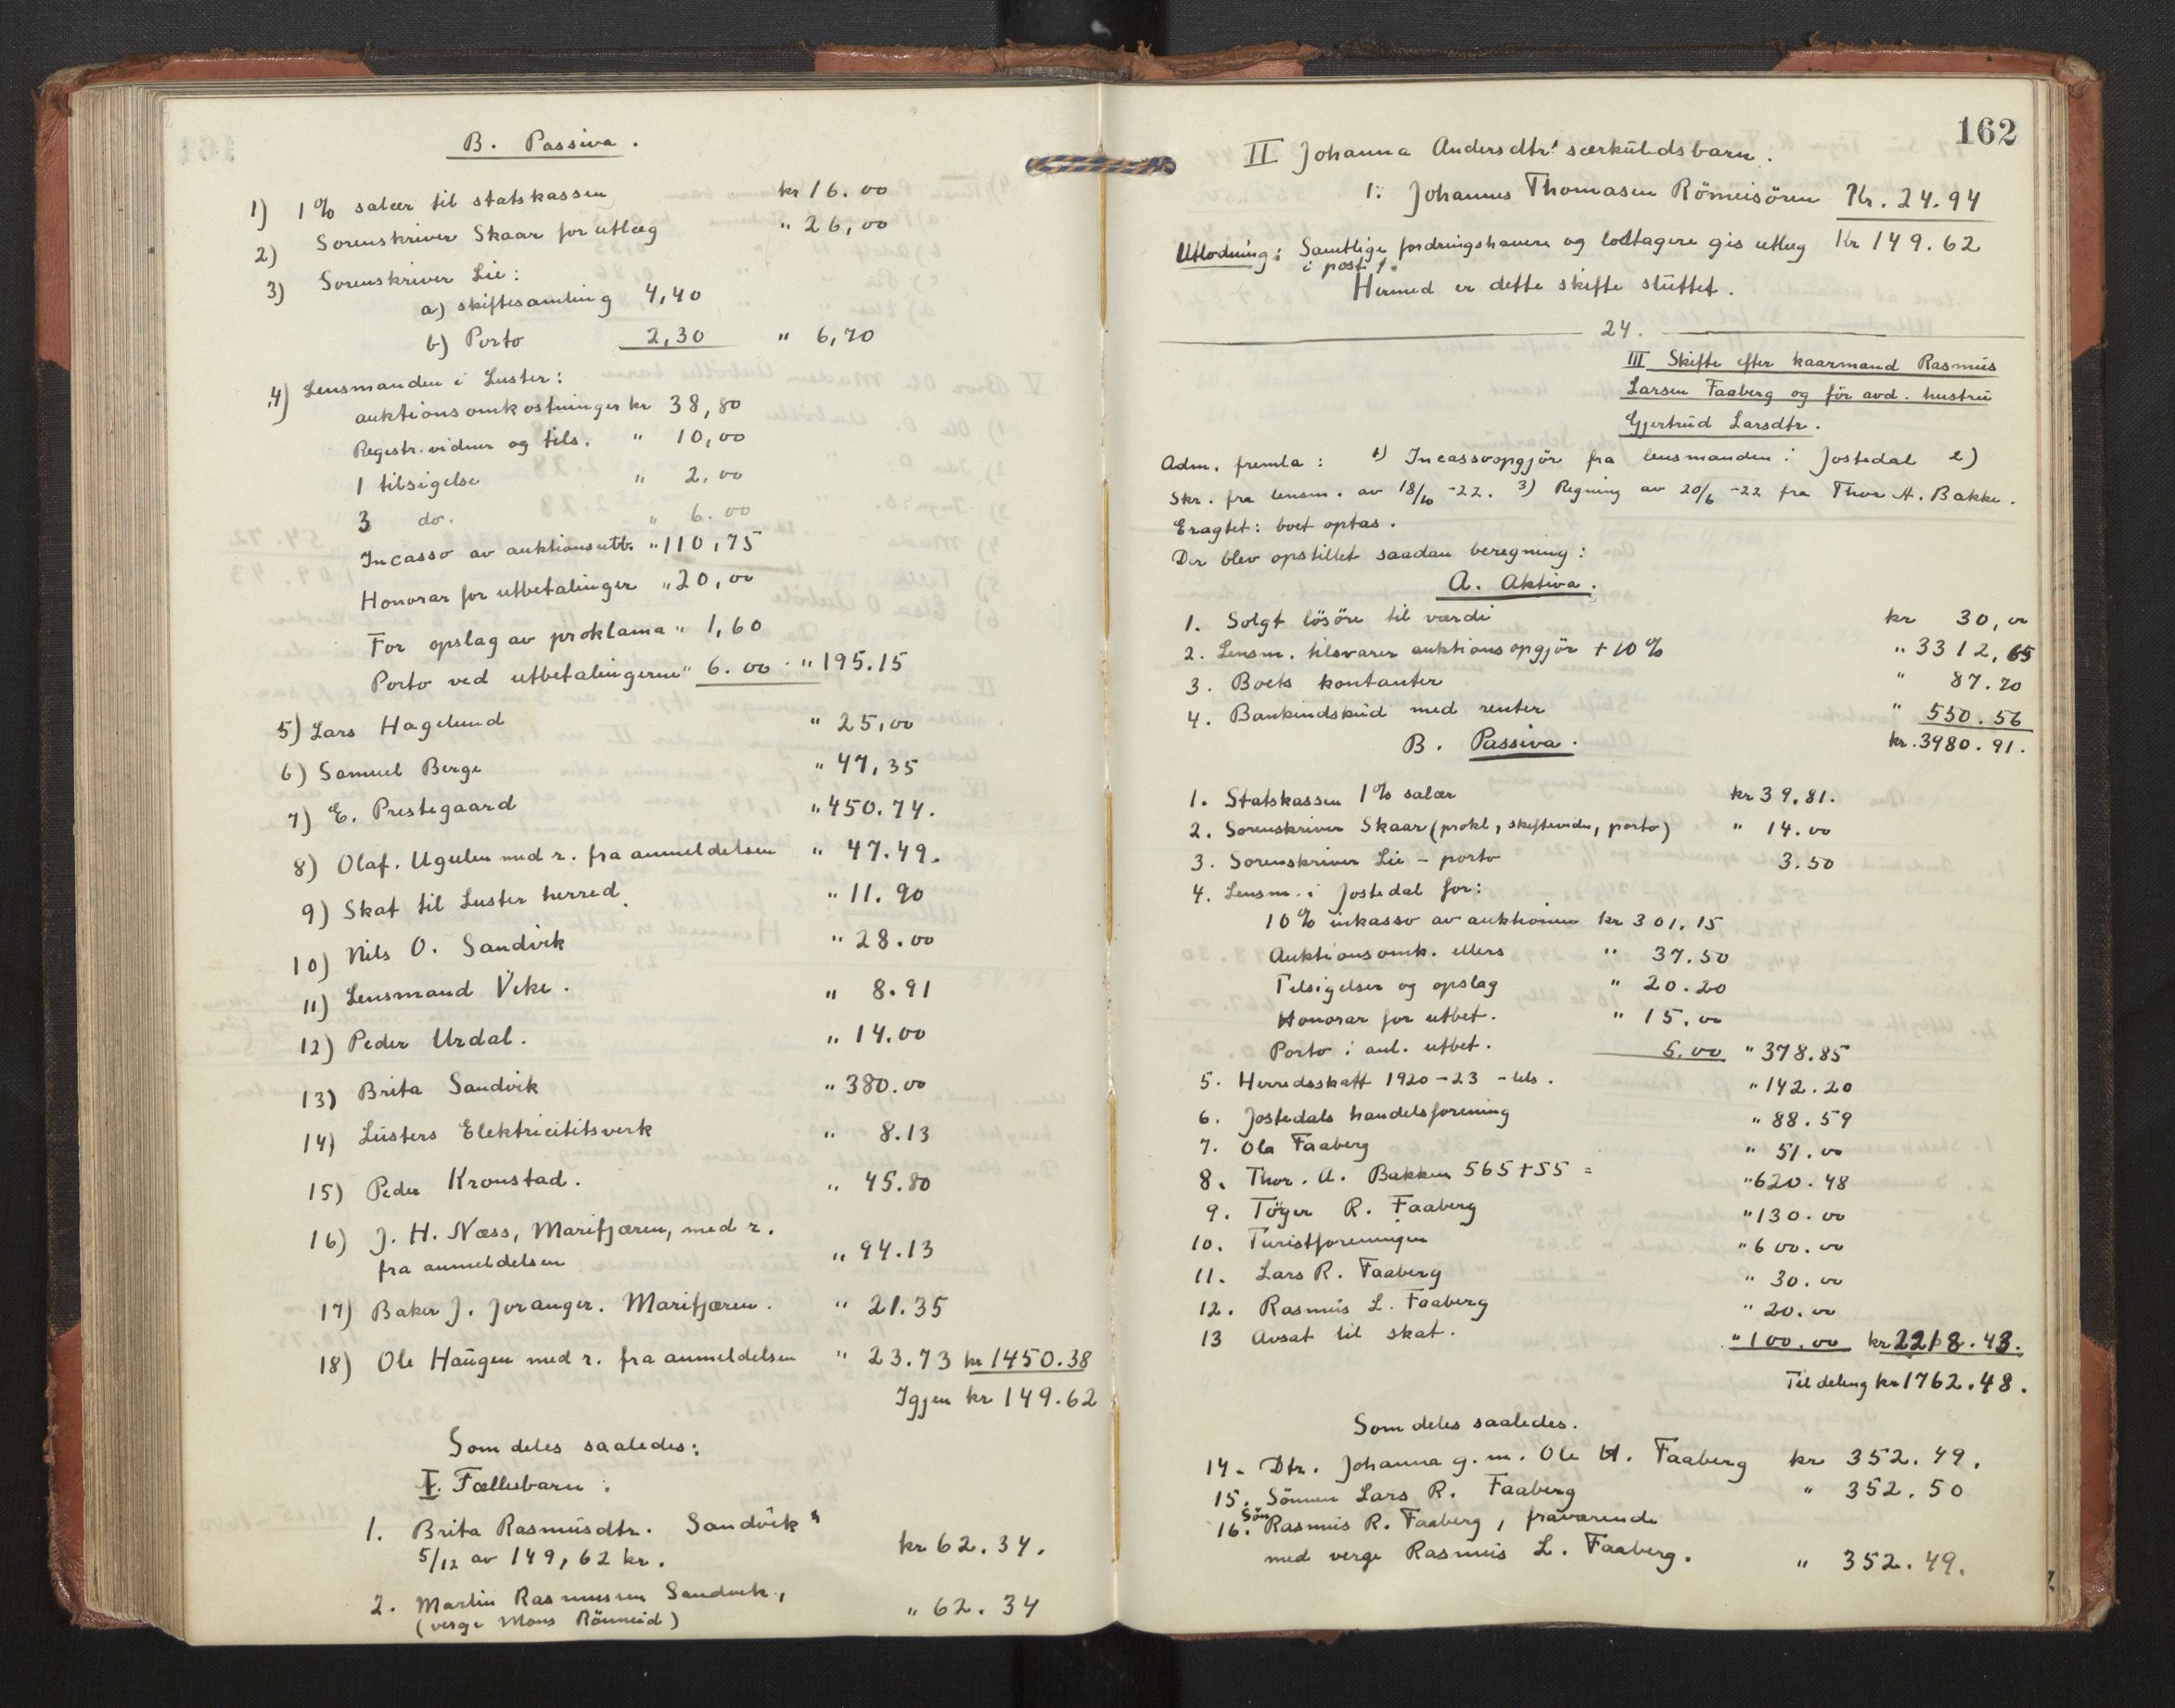 B. Passiva.
1) 1% salær til statskassen kr 16.00
2) Sorenskriver Skaar for utlæg " 26,00
3) Sorenskriver Lie:
a) skiftesamling 4,40
b) Porto 2,30 " 6,70
4) Lensmanden i Luster:
auktionsomkostninger kr 38,80
Registr. vidner og tils. " 10,00
1 tilsigelse " 2,00
3 do. " 6.00
Incasso av auktionsutb. " 110,75
Honorar for utbetalinger " 20,00
For opslag av proklama " 1,60
Porto ved utbetalingerne " 6.00 " 195.15
5) Lars Hagelund " 25,00
6) Samuel Berge " 47,35
7) E. Prestegaard " 450.74.
8) Olaf. Ugulen med r. fra anmeldelsen " 47.49.
9) Skat til Luster herred. " 11.90
10) Nils O. Sandvik " 28.00
11) Lensmand Veke. " 8.91
12) Peder Urdal. " 14.00
13) Brita Sandvik " 380.00
14) Lusters Elektricititsverk " 8.13
15) Peder Kronstad. " 45.80
16) J. H. Næss, Marifjæren, med r.
fra anmeldelsen " 94.13
17) Baker J. Joranger. Marifjæren. " 21.35
18) Ole Haugen med r. fra anmeldelsen " 23.73 kr 1450.38
Igjen kr 149.62
Som deles saaledes:
I. Fællesbarn:
1. Brita Rasmusdtr. Sandvik
5/12 av 149,62 kr. kr 62.34.
2. Martin Rasmussen Sandvik,
(verge Mons Rönneid) " 62.34
162
II Johanna Andersdtrs særkuldsbarn.
1. Johannes Thomasen Römeisören Kr. 24.94
Utlodning: Samtlige fordringshavere og lodtagere gis utlæg Kr 149.62
i post 1.
Hermed er dette skifte sluttet.
24.
III Skifte efter kaarmand Rasmus
Larsen Faaberg og för avd. hustru
Gjertrud Larsdtr.
Adm. fremla: 1) Incassoopgjör fra lensmanden i Jostedal 2)
Skr. fra lensm. av 18/10 -22. 3) Regning av 20/6 -22 fra Thor A. Bakke.
Eragtet: boet optas.
Der blev opstillet saadan beregning:
A. Aktiva.
1. Solgt lösöre til værdi kr 30,00
2. Lensm. tilsvarer auktionsopgjör + 10% " 3312,65
3. Boets kontanter " 87.70
4. Bankindskud med renter " 550.56
kr. 3980.91.
B. Passiva.
1. Statskassen 1% salær kr 39.81.
2. Sorenskriver Skaar (prokl, skiftevidn, porto) " 14.00
3. Sorenskriver Lie - porto 3.50
4. Lensm. i Jostedal for:
10% inkasso av auktionen kr 301.15
Auktionsomk. ellers " 37.50
Tilsigelser og opslag " 20.20
Honorar for utbet. " 15.00
Porto i anl. utbet. 5.00 " 378.85
5. Herredsskatt 1920-23 - tils. " 142.20
6. Jostedals handelsforening " 88.59
7. Ola Faaberg " 51.00
8. Thor. A. Bakken 565 + 55 = " 620.48
9. Töger R. Faaberg " 130.00
10. Turistforeningen " 600.00
11. Lars R. Faaberg " 30.00
12. Rasmus L. Faaberg " 20.00
13 Avsat til skat. " 100.00 kr 2218.43.
Til deling kr 1762.48.
Som deles saaledes.
14. Dtr. Johanna g. m. Ole H. Faaberg kr 352.49.
15. Sönnen Lars R. Faaberg " 352.50
16. Sön Rasmus R. Faaberg, fraværende
med verge Rasmus L. Faaberg. " 352.49.